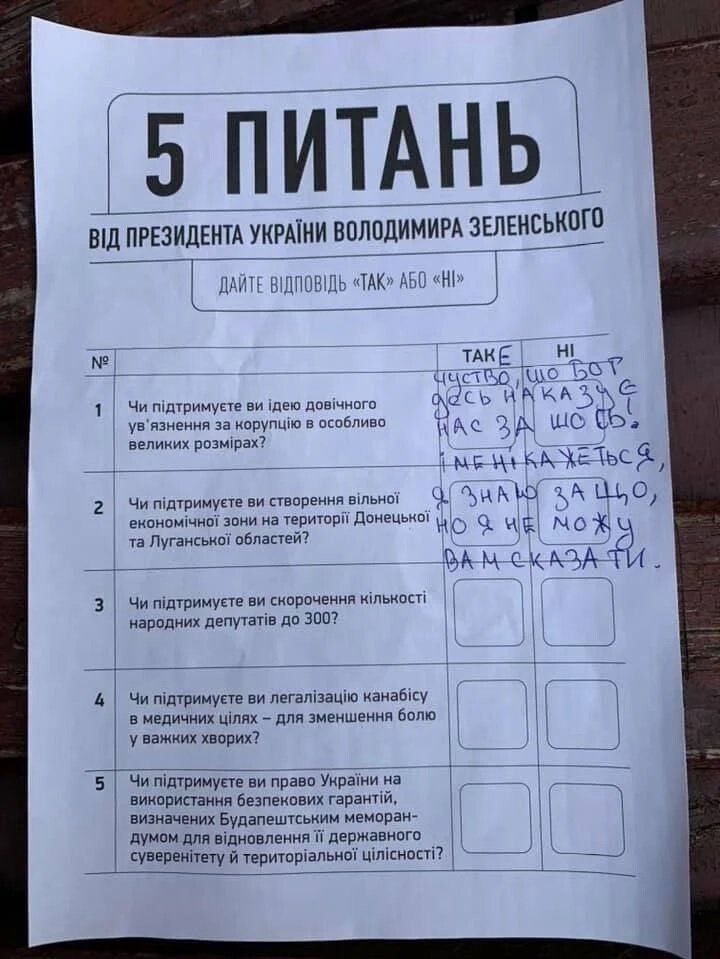 5 ПИТАНЬ
ВІД ПРЕЗИДЕНТА УКРАЇНИ ВОЛОДИМИРА ЗЕЛЕНСЬКОГО
ДАЙТЕ ВІДПОВІДЬ «ТАК» АБО «НІ»
№ ТАКЕ НІ
чуство, шо Бог
десь наказує
нас за шось!
і мені кажеться,
я знаю за що,
но я не можу
вам сказати.
1 Чи підтримуєте ви ідею довічного
ув'язнення за корупцію в особливо
великих розмірах?
2 Чи підтримуєте ви створення вільної
економічної зони на території Донецької
та Луганської областей?
3 Чи підтримуєте ви скорочення кількості
народних депутатів до 300?
4 Чи підтримуєте ви легалізацію канабісу
в медичних цілях – для зменшення болю
у важких хворих?
5 Чи підтримуєте ви право України на
використання безпекових гарантій,
визначених Будапештським меморан-
думом для відновлення її державного
суверенітету й територіальної цілісності?